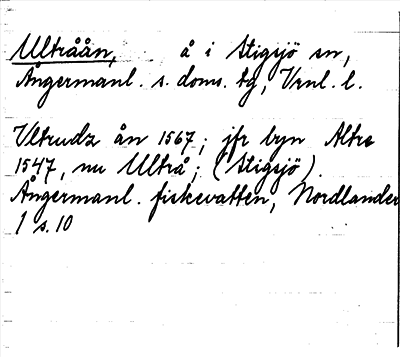 Ultråån, å i Stigsjö sn,
Ångermanl. s. doms. tg, Vrnl. l.
Vltrudz ån 1567; jfr byn Altre
1547, nu Ultrå; (Stigsjö).
Ångermanl. fiskevatten, Nordlander
1 s. 10